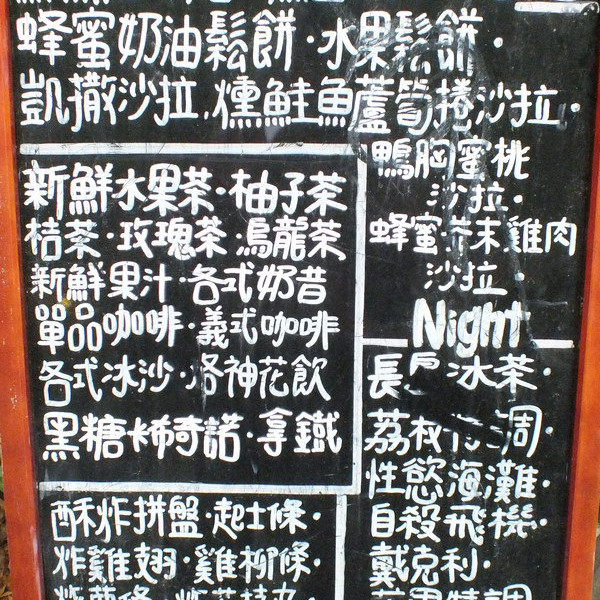 蜂蜜奶油鬆餅·水果鬆餅·
凱撒沙拉,燻鮭魚蘆筍捲沙拉·
鴨胸蜜桃
沙拉·
蜂蜜芥末雞肉
沙拉·
新鮮水果茶·柚子茶
桔茶·玫瑰茶 烏龍茶
新鮮果汁·各式奶昔
單品咖啡·義式咖啡
各式冰沙·洛神花飲
黑糖卡布奇諾·拿鐵
Night
長戶冰茶·
荔枝 調·
性慾海灘·
自殺飛機·
戴克利·
特調
酥炸拼盤·起士條·
炸雞翅·雞柳條·